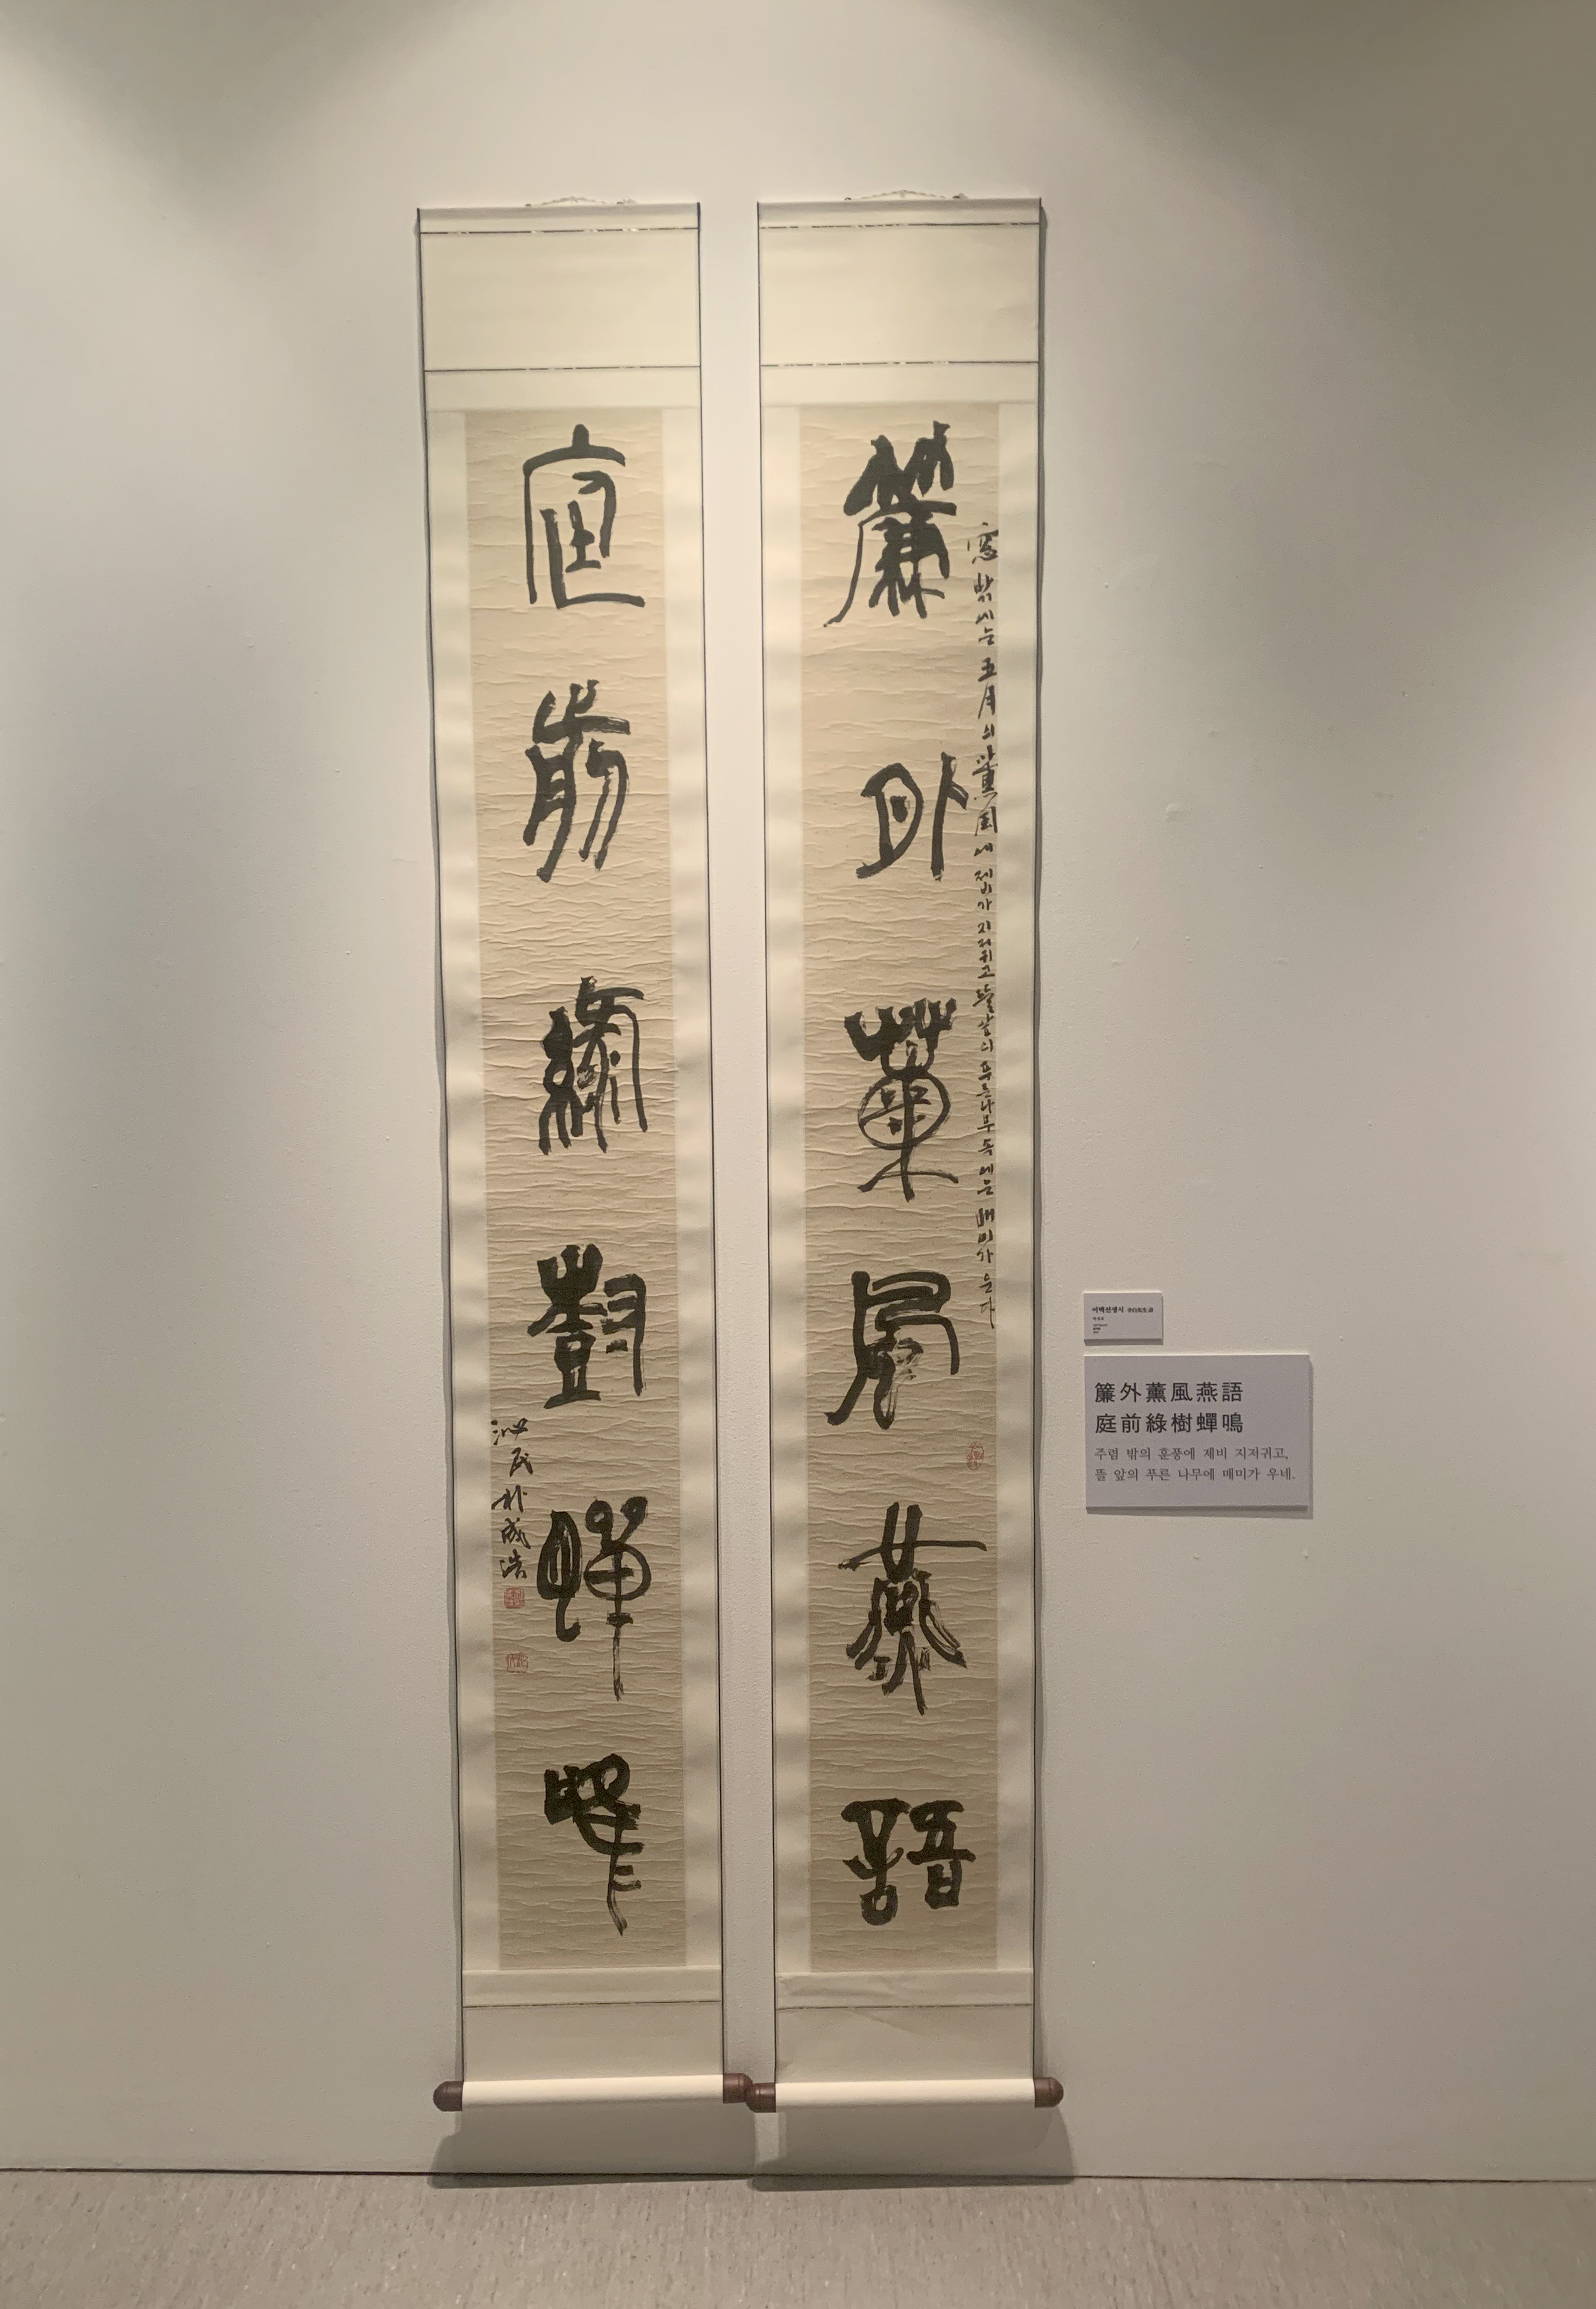 簾外薰風燕語
窓밖에는 五月의 薰風에 제비가 지저귀고 뜰앞의 푸른나무 속에는 매미가 운다
庭前綠樹蟬鳴
朴成浩
이백선생시 李白先生詩
簾外薰風燕語
庭前綠樹蟬鳴
주렴 밖의 훈풍에 제비 지저귀고,
뜰 앞의 푸른 나무에 매미가 우네.